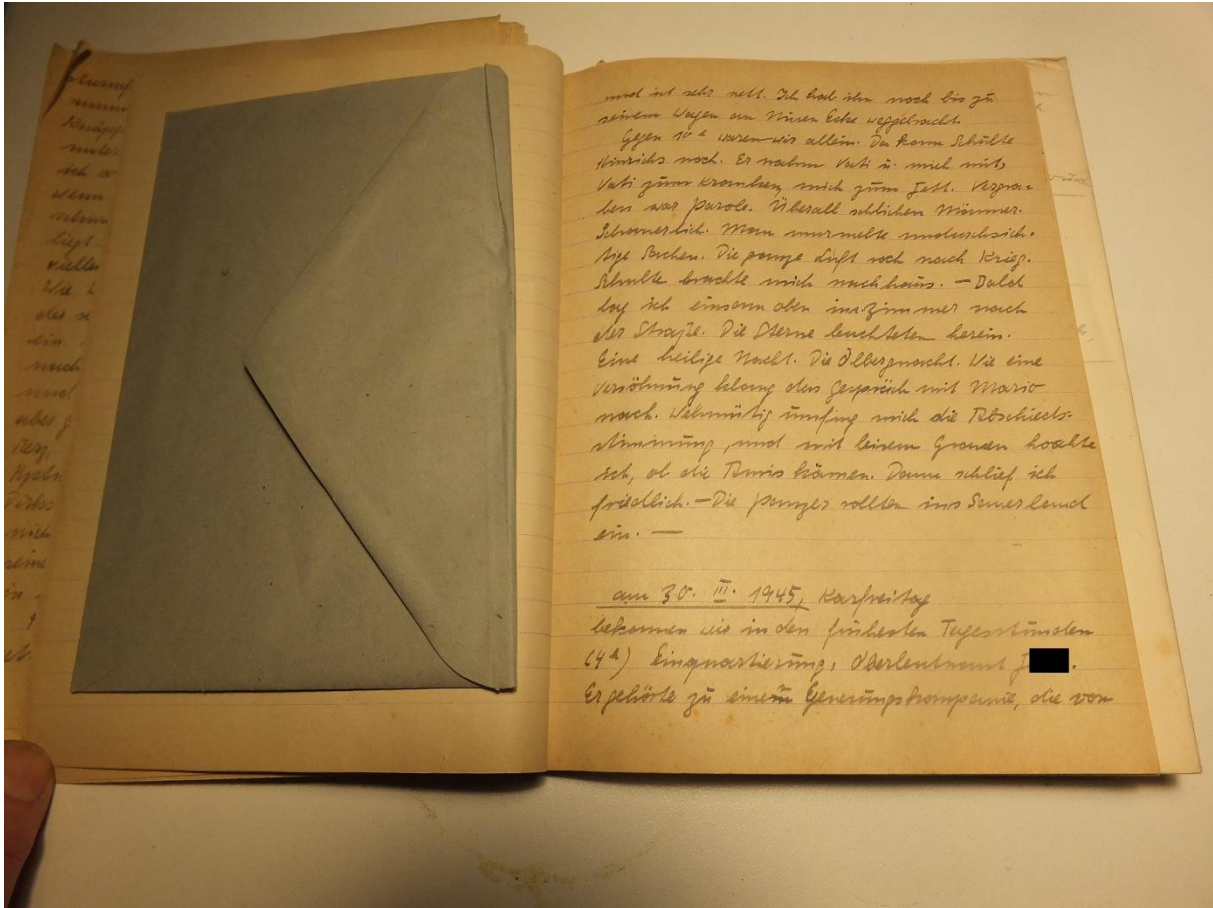 und ist sehr nett. Ich hab ihn noch bis zu
seinem Wagen an Ecke weggebracht
Gegen 10 h waren wir allein. Da kam Schulte
Hinrichs noch. Er nahm Vati u. mich mit,
Vati zum Kranken, mich zum Fett. Vergra-
ben war Parole. Überall schlichen Männer.
Schauerlich. Man murmelte undurchsich-
tige Sachen. Die ganze Luft roch nach Krieg.
Schulte brachte mich nach haus. — Bald
lag ich einsam oben im Zimmer nach
der Straße. Die Sterne leuchteten herein.
Eine heilige Nacht. Die Ölbergnacht. Wie eine
Versöhnung klang das Gespräch mit Mario
nach. Wehmütig umfing mich die Abschieds-
stimmung, und mit leisem Grauen horchte
ich, ob die Amis kämen. Dann schlief ich
friedlich. — Die Panzer rollten ins Sauerland
ein. —
am 30. III. 1945, Karfreitag
bekamen wir in den frühesten Tagesstunden
(4 h) Einquartierung, Oberleutnant J
Er gehörte zu einer Genesungskompanie, die von